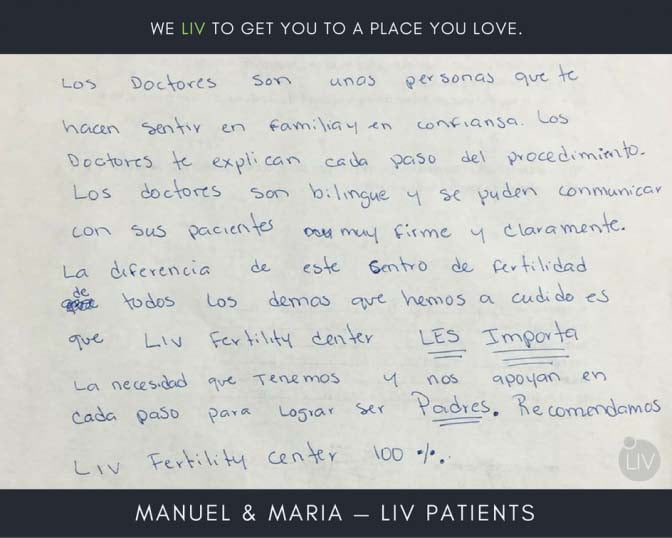 WE LIV TO GET YOU TO A PLACE YOU LOVE.
Los Doctores son unas personas que te
hacen sentir en familia y en confiansa. Los
Doctores te explican cada paso del procedimiento.
Los doctores son bilingue y se puden conmunicar
con sus pacientes muy firme y claramente.
La diferencia de este sentro de fertilidad
de todos los demas que hemos a cudido es
que Liv Fertility center LES Importa
La necesidad que Tenemos y nos apoyan en
cada paso para Lograr ser Padres. Recomendamos
Liv Fertility center 100 %.
LIV
MANUEL & MARIA — LIV PATIENTS